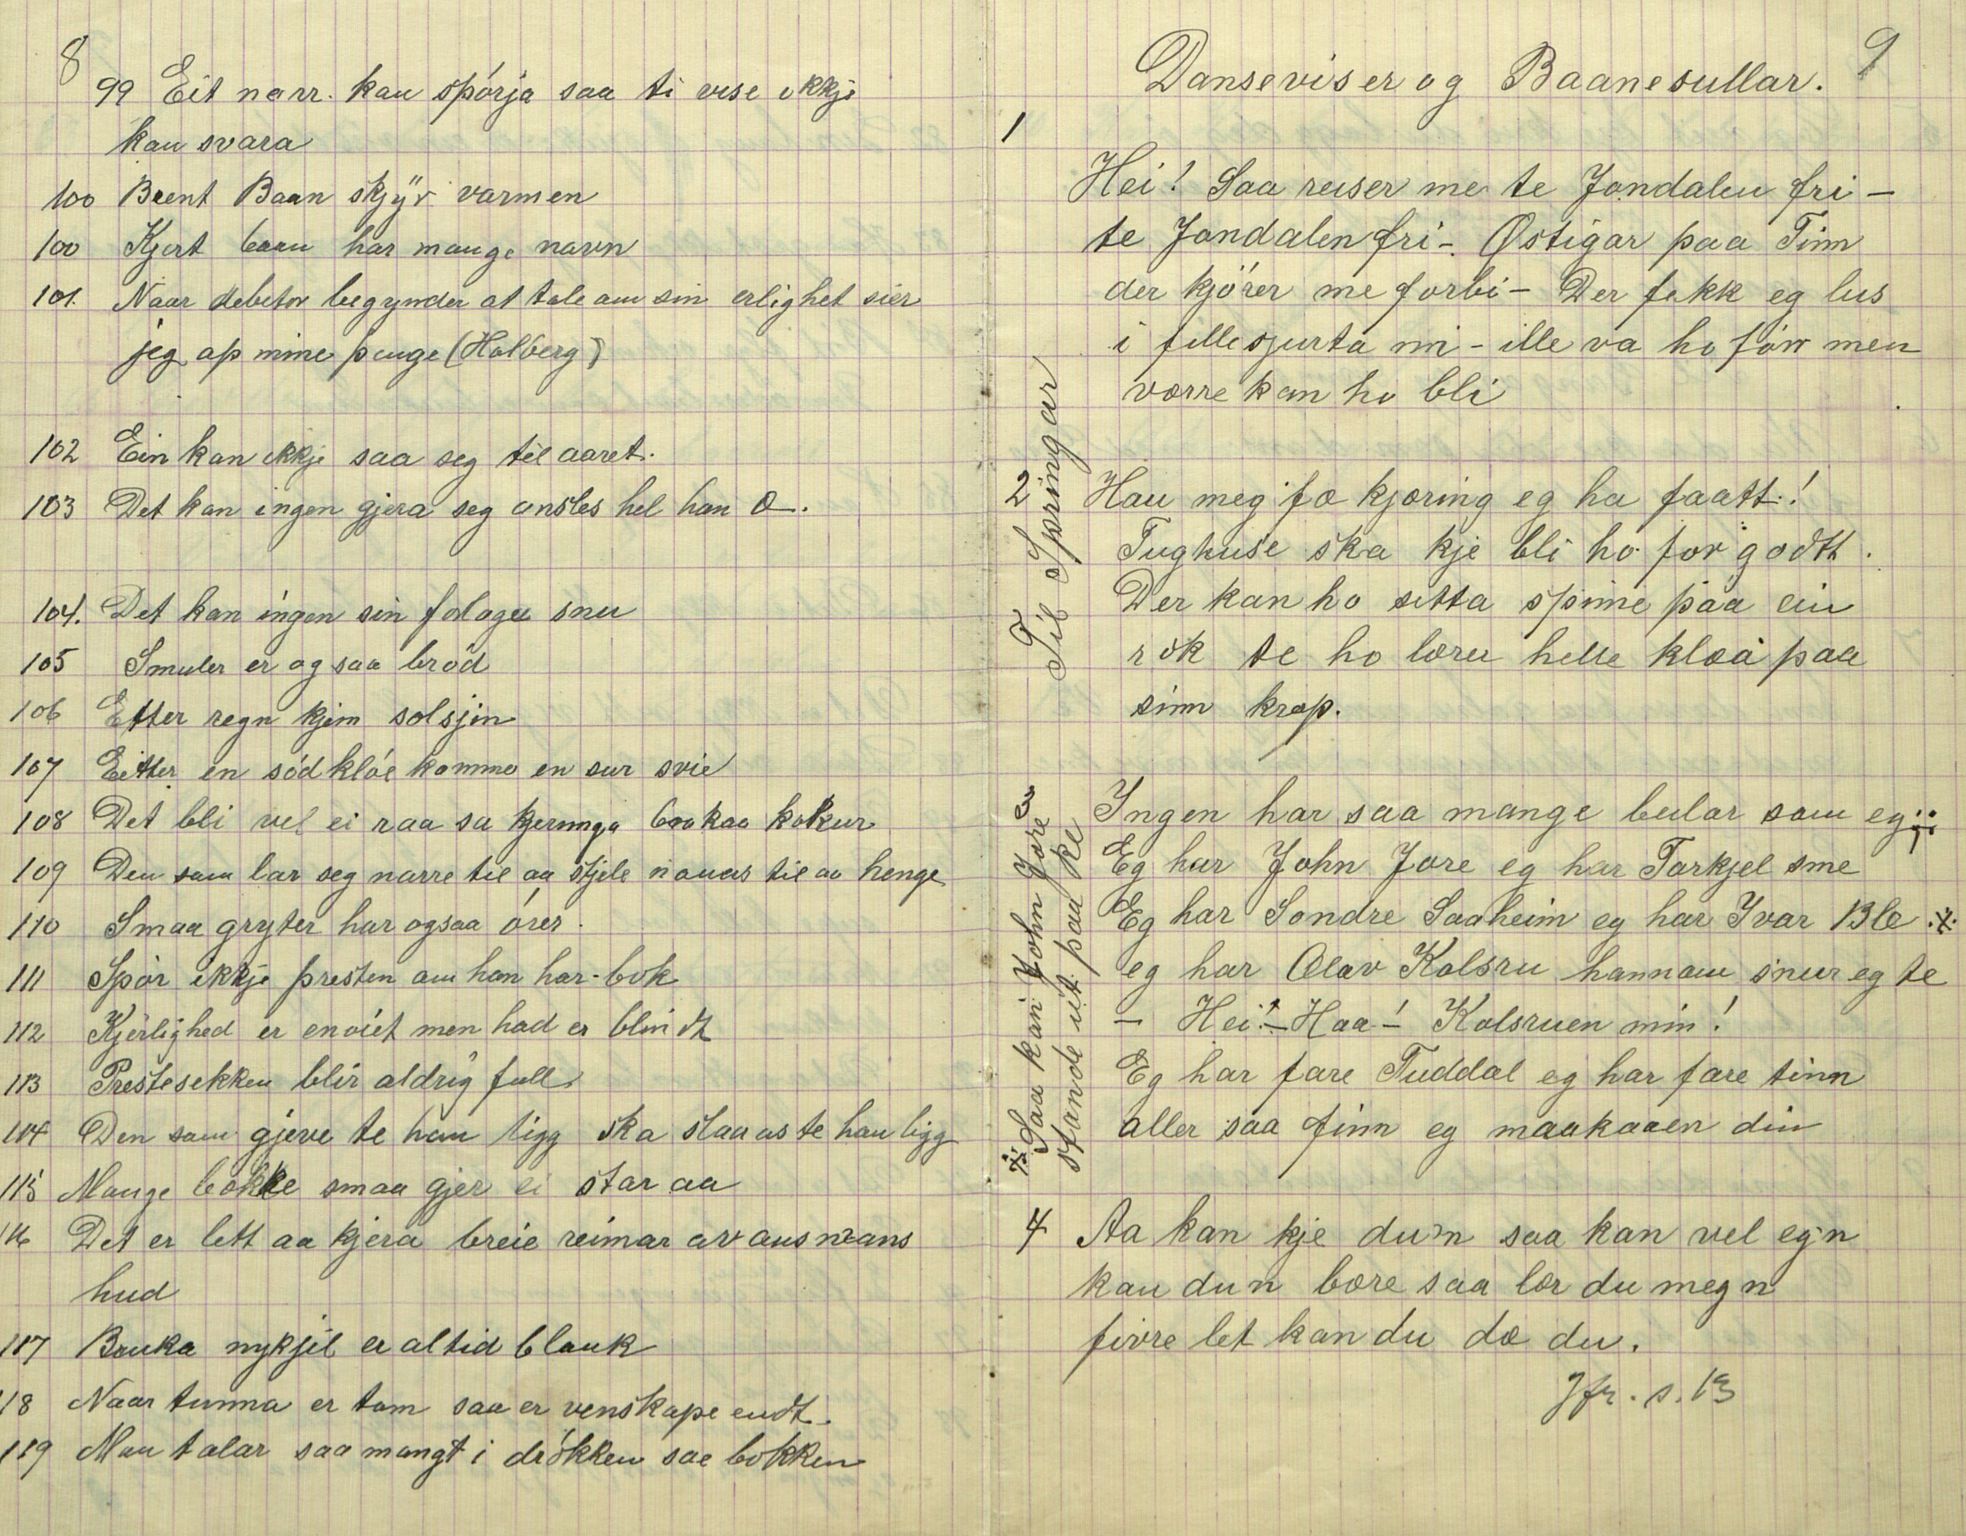 8
99 Eit narr kan spórja saa ti vise ikkje
kan svara
100 Brent Baan skÿr varmen
100 Kjert baan har mange navn
101. Naar debetor begynder at tale om sin erlighet sier
jeg op mine penge (Holberg)
102 Ein kan ikkje saa seg til aaret.
103 Det kan ingen gjera seg onsles hel han æ.
104. Det kan ingen sin folagu snu
105 Smuler er ogsaa bród
106 Etter regn kjem solsjin
107 Eitter en sód klóe kommo en sur svie
108 Det bli vel ei raa sa kjeringa baakaa kokur
109 Den som lar seg narre til aa stjele naues til aa henge
110 Smaa gryter har ogsaa órer.
111 Spór ikkje presten om han har-bok
112 Kjërlighed er enóiet men had er blindt
113 Prestesekken blir aldrig full
114 Den som gjeve te han ligg ska slaaas te han ligg
115 Mange bekke smaa gjer ei star aa
116 Det er lett aa kjera breie reimar av ansmans
hud
117 Bruka nykjil er altid blank
118 Naar tunna er tom saa er venskape endt.
119 Man talar saa mangt i drókken sae bokken
9
Danseviser og Baanesullar.
1
Hei! Saa reiser me te Jondalen fri –
te Jondalen fri –. Østigar paa Tinn
der kjörer me forbi – Der fekk eg lus
i fillesjurta mi – ille va ho fórr men
værre kan ho bli
Til Springar
2 Hau meg fo kjæring eg ha faatt!
Tughuse ska kje bli ho for godtt.
Der kan ho sitta spinne paa ein
rok te ho lærer helle klæa paa
sinn krop.
3
Ingen har saa mange beilar som eg ;;
Eg har John Jore eg har Tarkjel sme
Eg har Sondre Saaheim eg har Ivar Ble .x.
eg har Olav Kolsru hannom snur eg te
– Hei! – Haa – ! Kolsruen min!
Eg har fare Tuddal eg har fare tinn
aller saa finn eg maakaaen din
x Saa kan John Jore
stande ut paa ke
4 Aa kan kje du'n saa kan vel eg'n
kan du n bære saa lær du meg n
fivre let kan du dæ du.
Jfr. s. 13